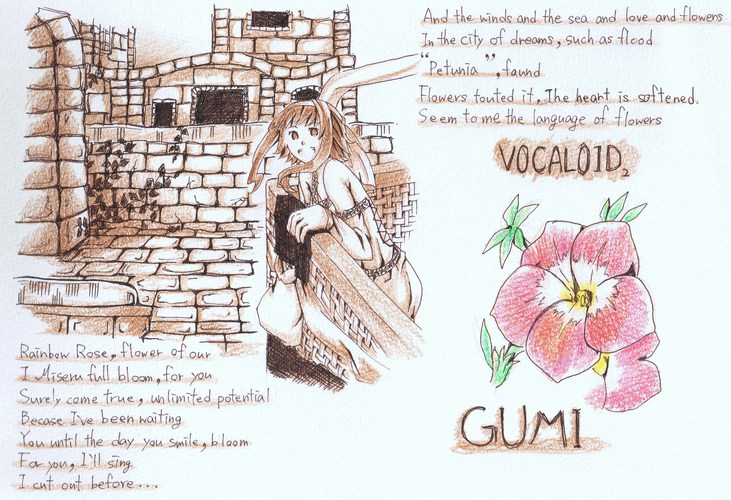 And the winds and the sea and love and flowers
In the city of dreams, such as flood
"Petunia", faund
Flowers touted it, The heart is softened.
Seem to me the language of flowers
VOCALOID2
Rainbow Rose, flower of our
I Miseru full bloom, for you
Surely come true, unlimited potential
Becase I've been waiting
You until the day you smile, bloom
For you, I'll sing
I cut out before...
GUMI